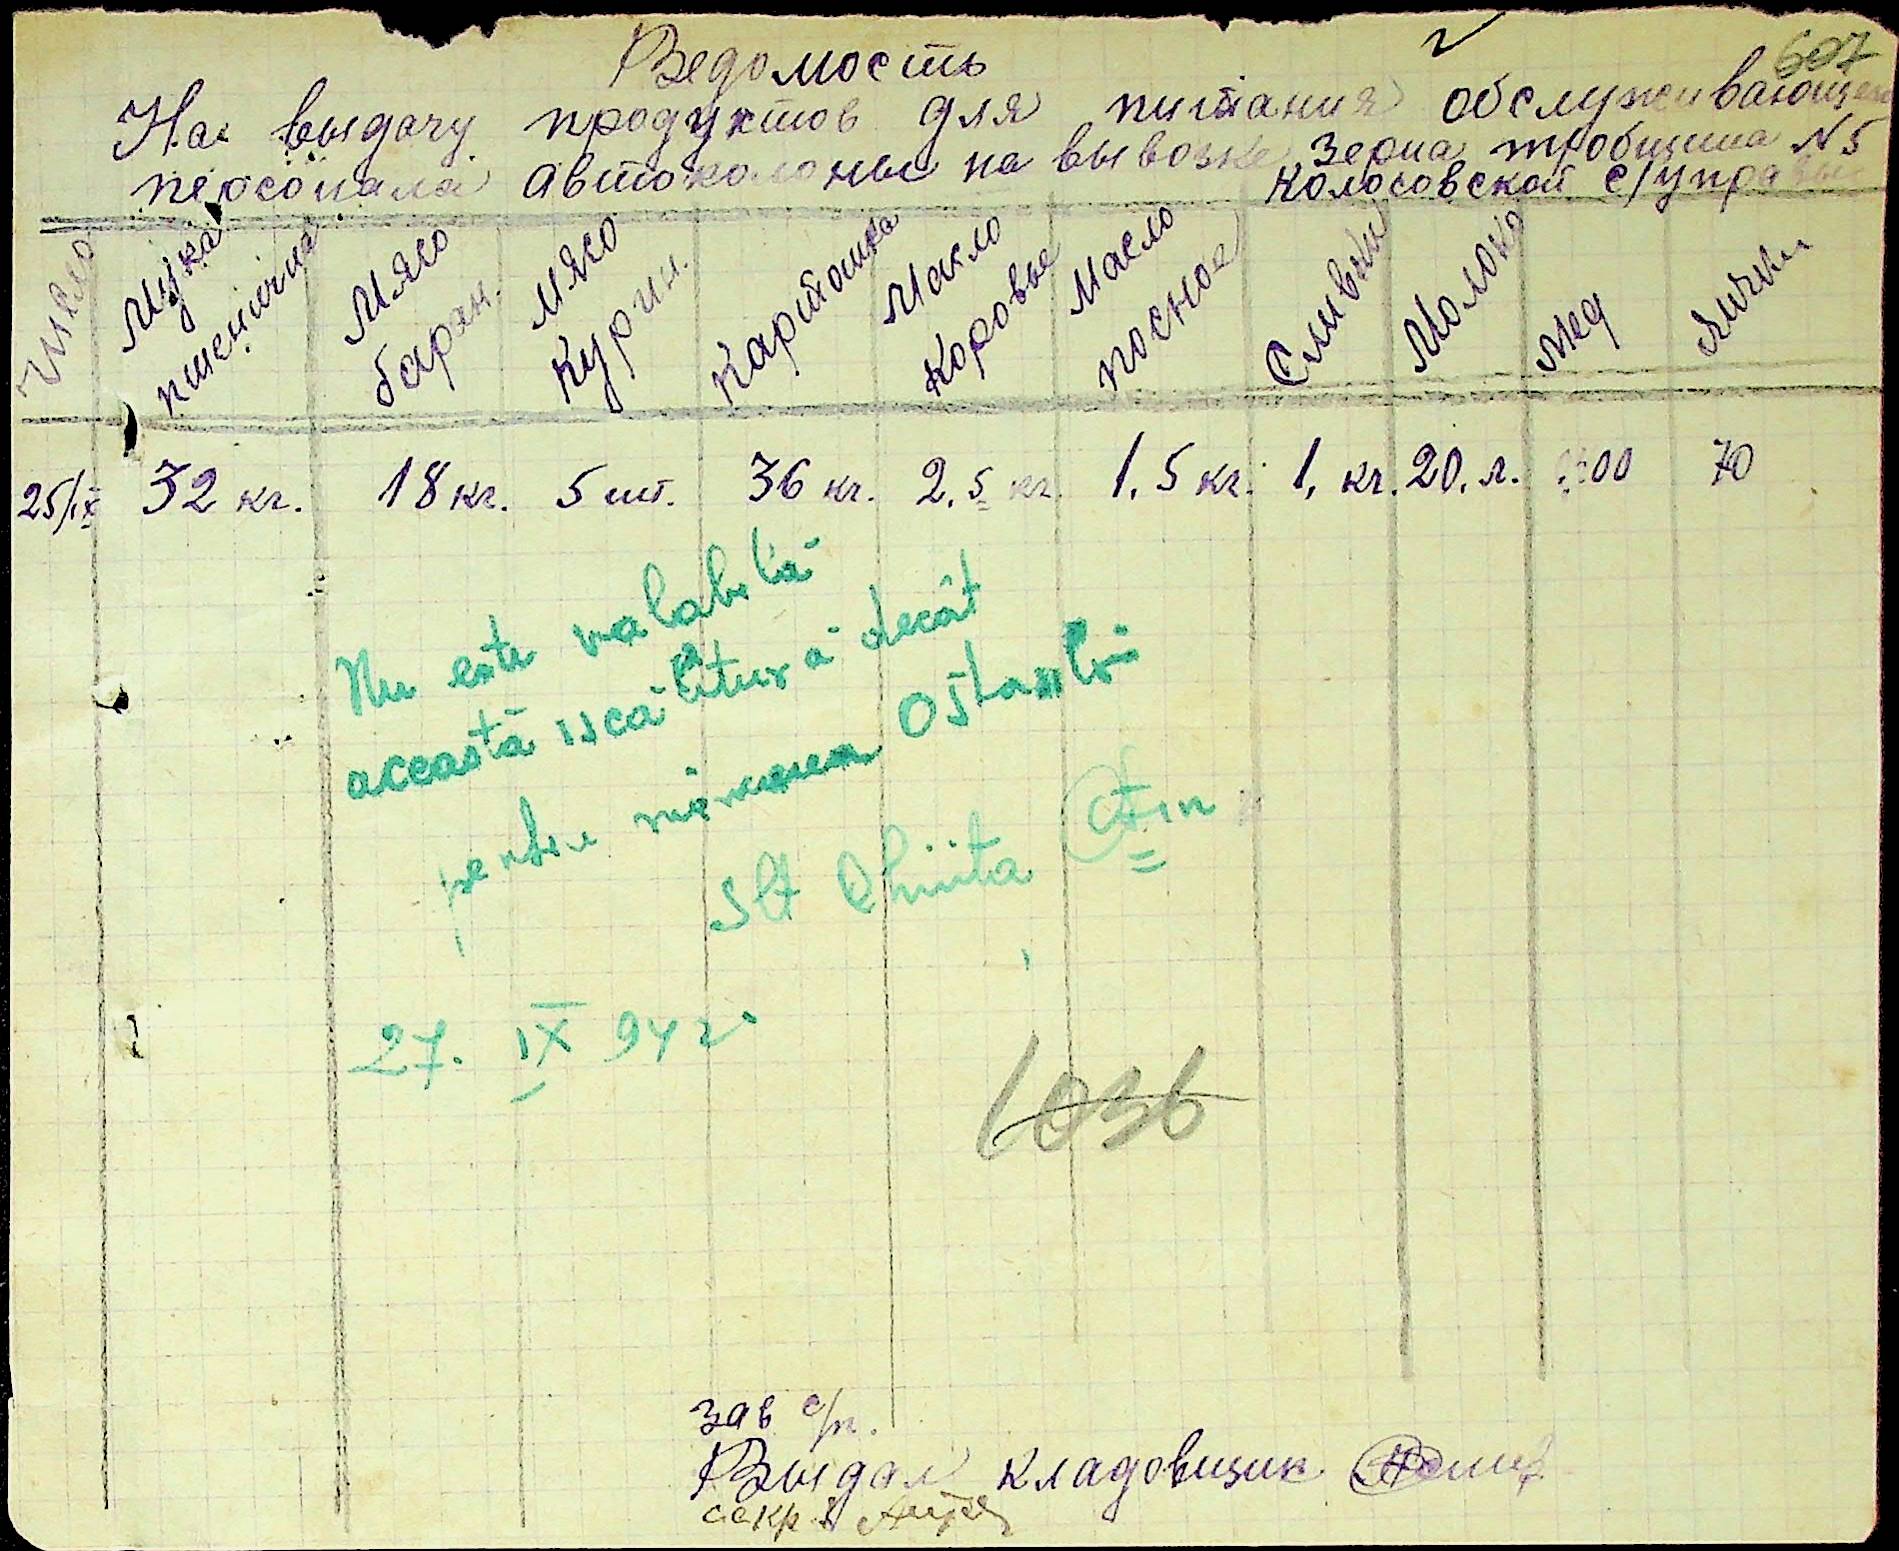 697
Ведомость
На выдачу продуктов для питания обслуживающего
персонала автоколоны на вывозке зерна тробщина N5
Колосовской с/управы
число
Мука пшенична
Мясо баран.
Мясо курин.
Картошка
Масло коровье
Масло посное
Сливки
Молоко
Мед
Яички
25/IX 32 кг. 18 кг. 5 шт. 36 кг. 2.5 кг. 1.5 кг. 1, кг. 20. л. 70
Nu este valabilă
această iscălitură decât
pentru mâncarea Ostașilor
Slt
27. IX 942.
1036
зав с/п.
Выдал кладовщик
секр.